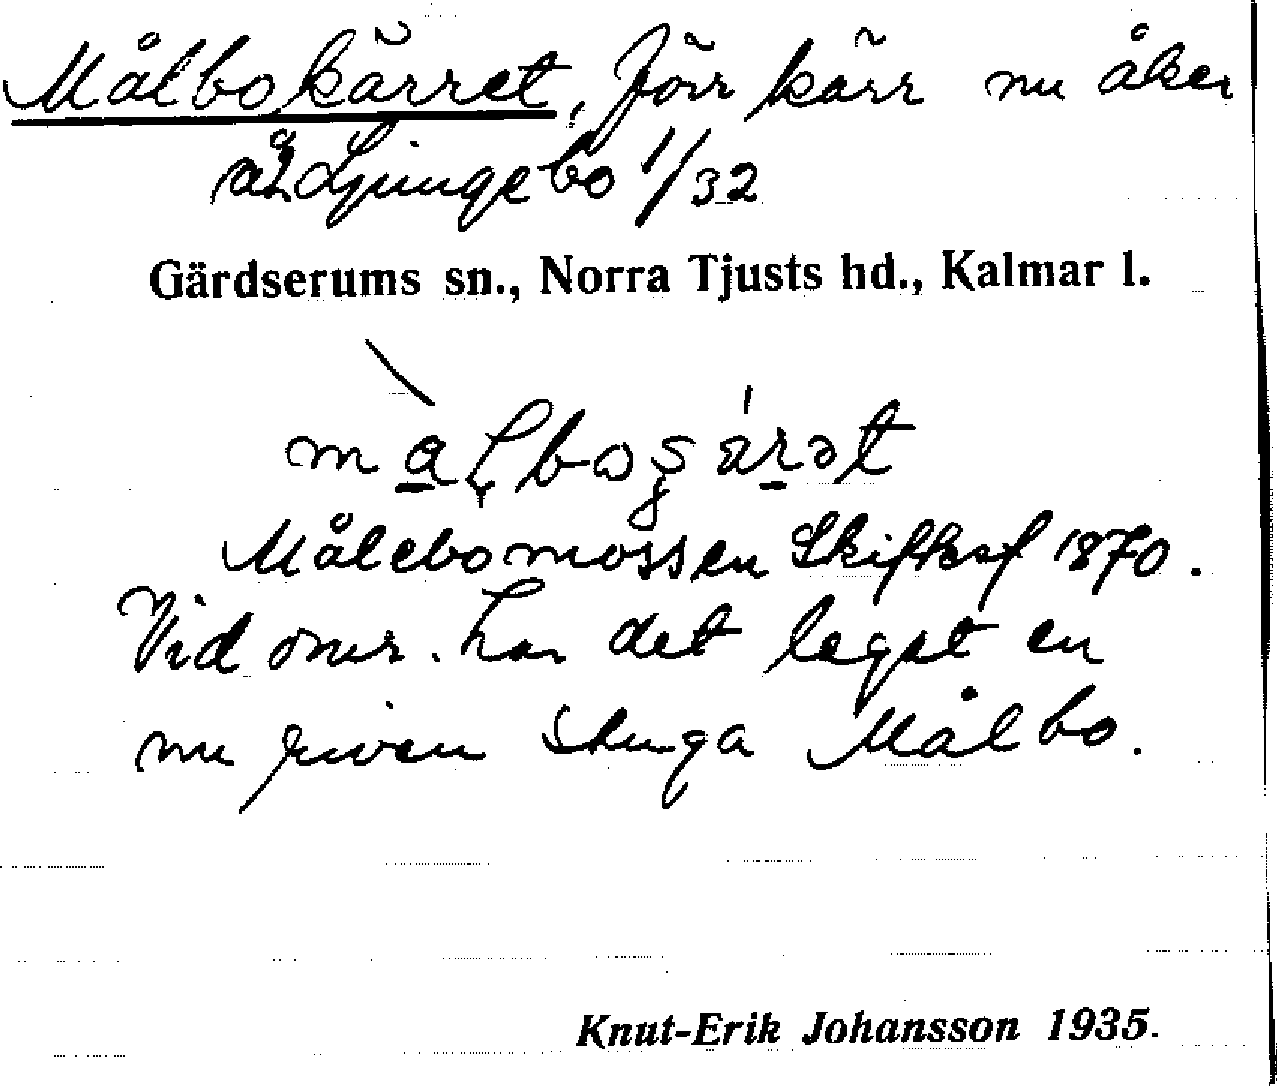 Målbokärret, förr kärr nu åker
på Ljungebo 1/32
Gärdserums sn., Norra Tjusts hd., Kalmar l.
Målebomossen Skifteaf 1870.
Vid omr. har det legat en
nu riven stuga Målbo.
Knut-Erik Johansson 1935.